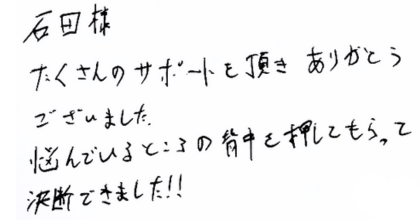 石田様
たくさんのサポートを頂き ありがとう
ございました。
悩んでいるところの背中を押してもらって
決断できました!!